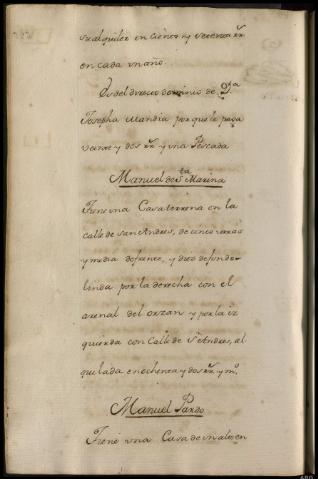 su alquiler en ciento y setenta rr.
en cada un año.
Es del directo dominio de D.ª
Josepha Mandia por que le paga
veinte y dos rr. y una Pescada
Manuel de S.ta Marina
Tiene una Casa terrena en la
calle de san Andres, de cinco varas
y media de frente, y diez de fondo
linda por la derecha con el
arenal del orzan y por la iz
quierda con Calle de Sn. Andres, al
quilada en ochenta y dos rr. y m.º
Manuel Pardo
Tiene una Casa de un alto en